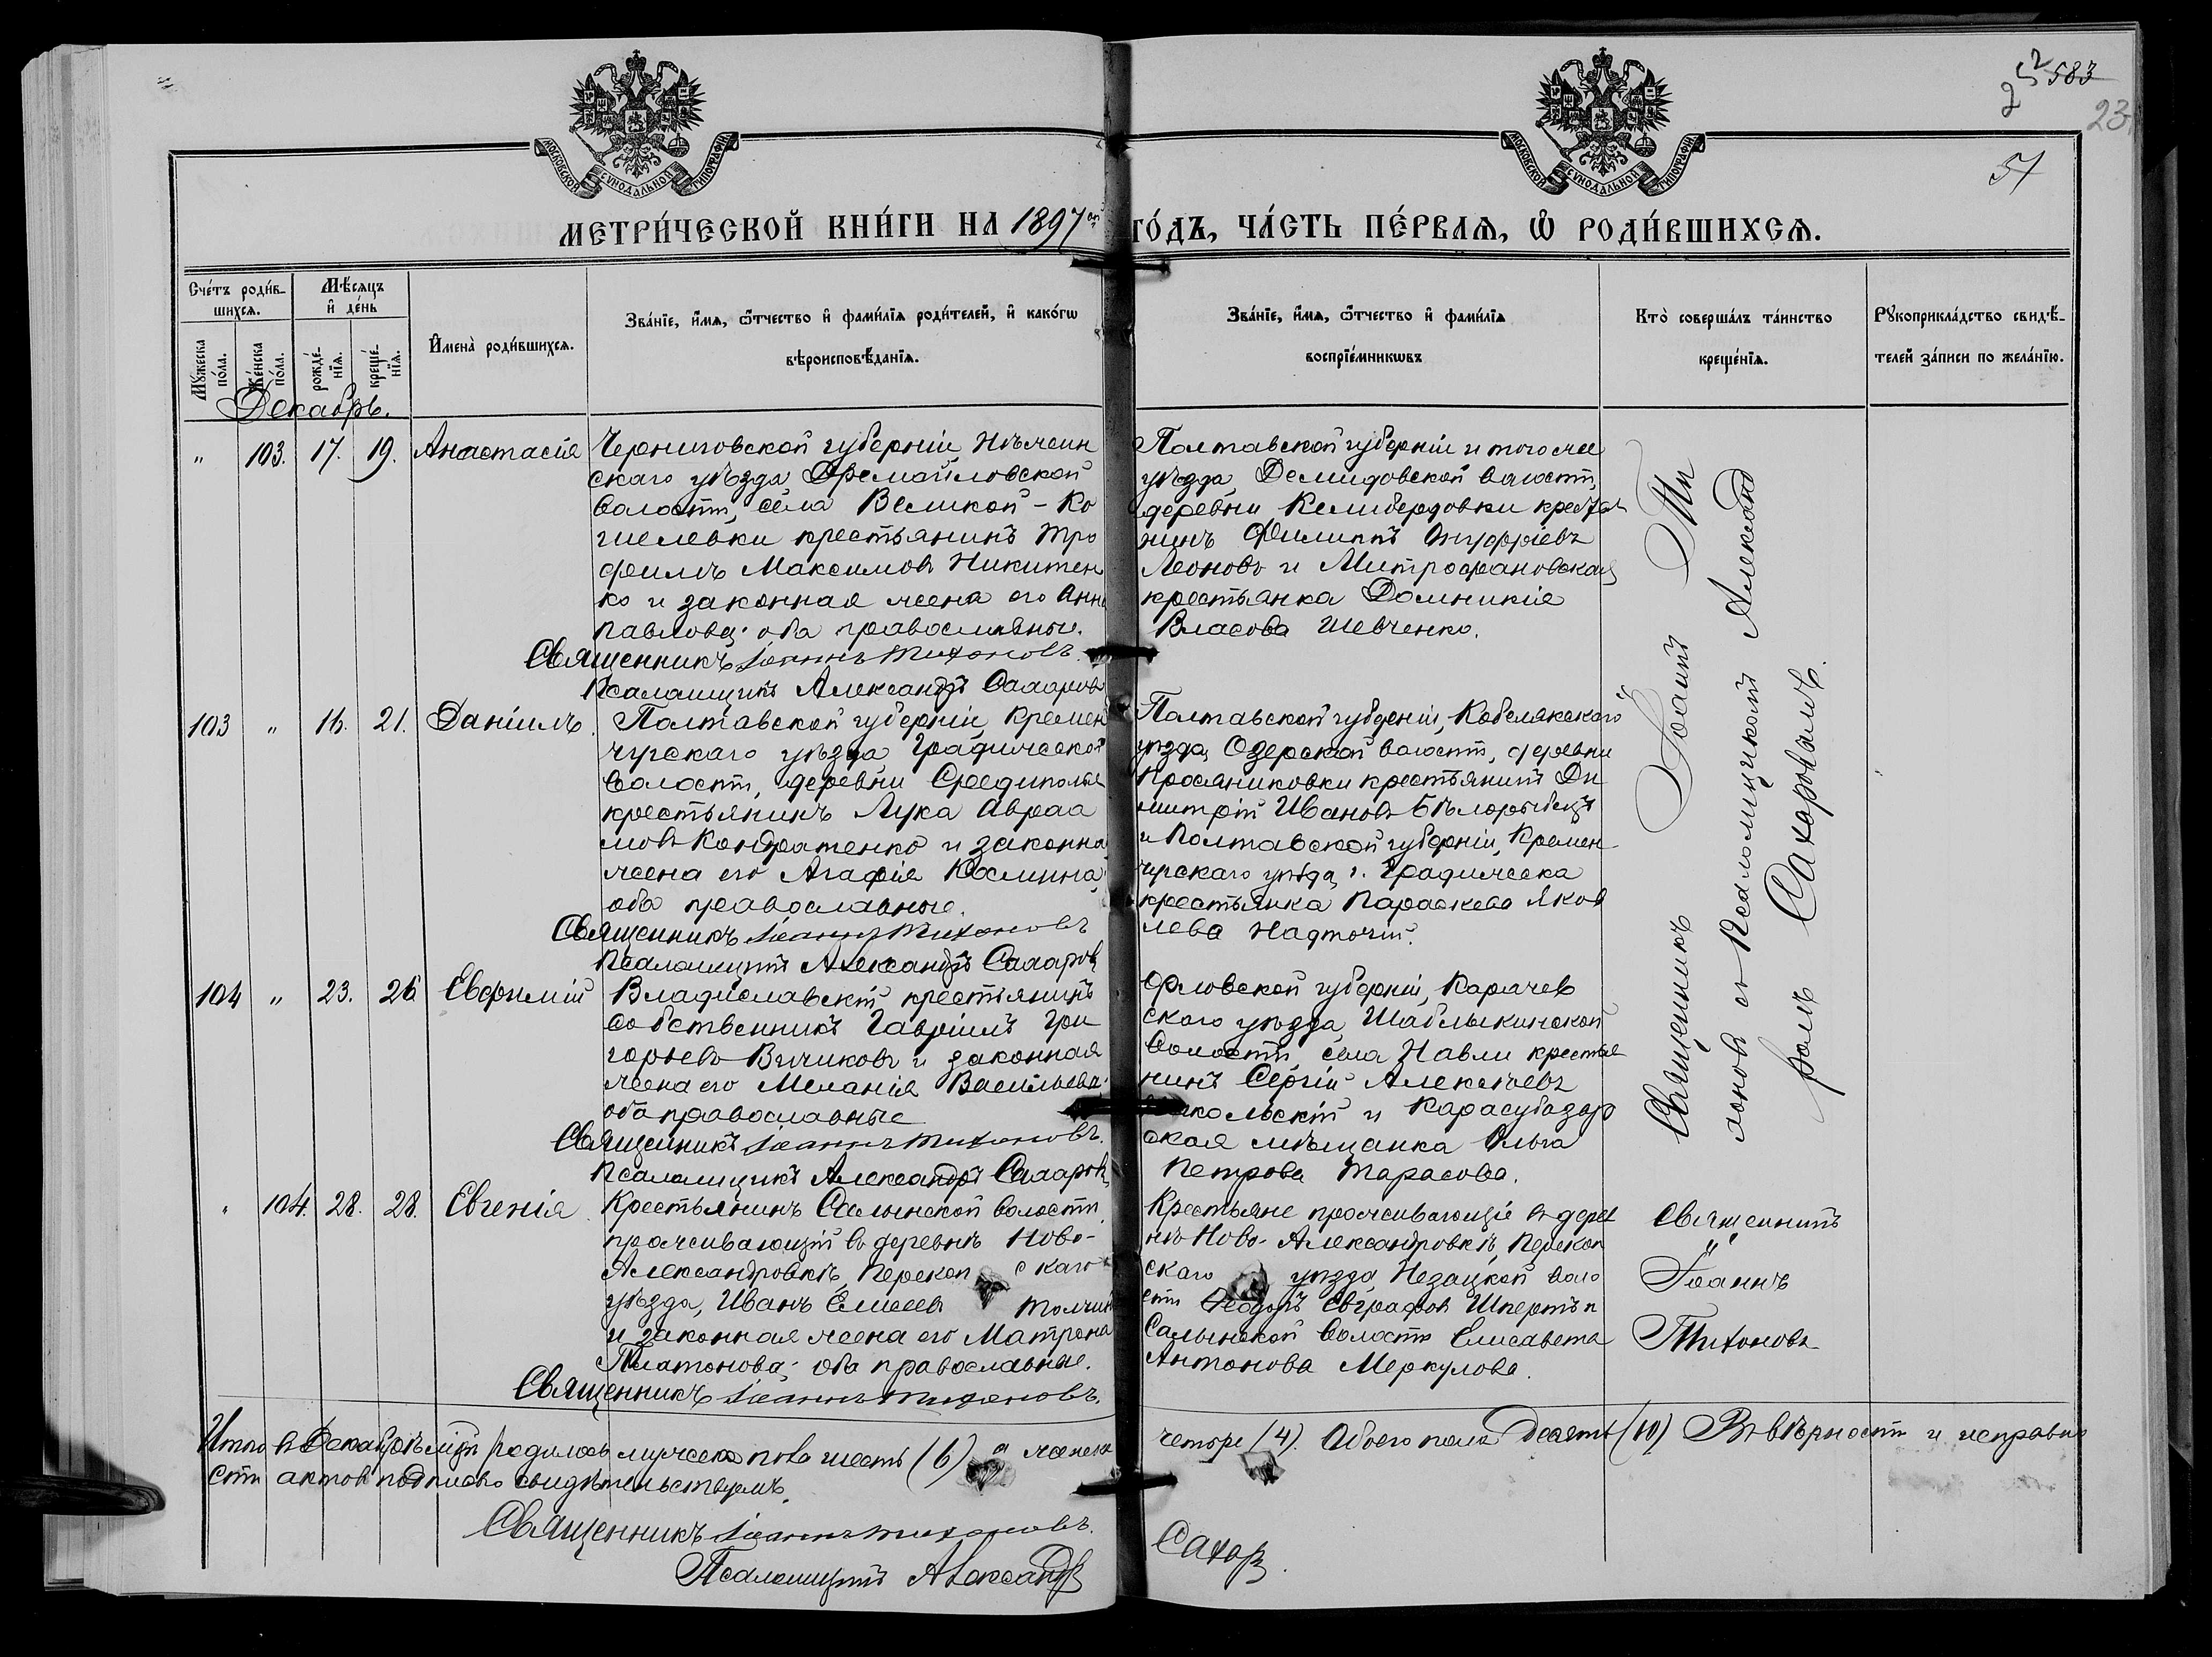 2 52 583
23
51
МОСКОВСКОЙ СѴНОДАЛЬНОЙ ТИПОГРАФІИ
МОСКОВСКОЙ СѴНОДАЛЬНОЙ ТИПОГРАФІИ
МЕТРИ́ЧЕСКОЙ КНИ́ГИ НА 1897 ГО́ДЪ, ЧА́СТЬ ПЕ́РВАѦ, Ѡ РОДИ́ВШИХСѦ.
Сче́тъ роди́в-
шихсѧ.
Мѣ́сѧцъ
и҆ де́нь
Мꙋ́жеска по́ла.
Же́нска по́ла.
рожде́-нїѧ.
креще́-нїѧ.
И҆мена̀ роди́вшихсѧ.
Зва́нїе, и҆́мѧ, ѻ҆́тчество и҆ фами́лїѧ роди́телей, и҆ како́гѡ
вѣроисповѣ́данїѧ.
Зва́нїе, и҆́мѧ, ѻ҆́тчество и҆ фами́лїѧ
воспрїе́мникѡвъ
Кто̀ соверша́лъ та́инство
креще́нїѧ.
Рꙋкоприкла́дство свидѣ́-
телей за́писи по жела́нїю.
Декабрь.
" 103. 17. 19. Анастасія
Черниговской губерніи, Нѣжин
скаго уѣзда,
волости, села Великой-Ко
шелевки крестьянинъ Тро
фимъ Максимовъ Никитен
ко и законная жена его Анна
Павлова; оба православные.
Священникъ Іоаннъ Тихоновъ.
Псаломщикъ Александръ Сахаровъ
Полтавской губерніи и того же
уѣзда, Демидовской волости,
деревни Келибердовки крестья
нинъ Филиппъ Онуфріевъ
Леоновъ и Митрофановская
крестьянка Домникія
Власова Шевченко.
103 " 16. 21. Даніилъ.
Полтавской губерніи, Кремен
чугскаго уѣзда, Градижской
волости, деревни
крестьянинъ Лука Авраа
мовъ Кондратенко и законная
жена его Агафія Космина;
оба православные.
Священникъ Іоаннъ Тихоновъ
Псаломщикъ Александръ Сахаровъ
Полтавской губерніи, Кобелякскаго
уѣзда, Озерской волости, деревни
Просяниковки крестьянинъ Ди
митрій Ивановъ
и Полтавской губерніи, Кремен
чугскаго уѣзда, г. Градижска
крестьянка Параскева Яков
лева Надточій.
104 " 23. 26 Евфимій
Владиславскій крестьянинъ
собственникъ Гавріилъ Гри
горьевъ Вичиковъ и законная
жена его Меланія Васильева;
оба православные
Священникъ Іоаннъ Тихоновъ.
Псаломщикъ Александръ Сахаровъ
Орловской губерніи, Карачев
скаго уѣзда, Шаблыкинской
волости, села Навли крестья
нинъ Сергій Алексѣевъ
и Карасубазар
ская мѣщанка Ольга
Петрова Тарасова.
Священникъ Іоаннъ Ти
хоновъ съ Псаломщикомъ Александ
ромъ Сахаровымъ.
" 104. 28. 28. Евгенія.
Крестьянинъ Салынской волости,
проживающій въ деревнѣ Ново-
Александровкѣ, Перекоп скаго
уѣзда, Иванъ Елисеевъ
и законная жена его Матрона
Платонова; оба православные.
Священникъ Іоаннъ Тихоновъ.
Крестьяне проживающіе въ дерев
нѣ Ново-Александровкѣ, Перекоп
скаго уѣзда, воло
сти Ѳеодоръ Евграфовъ и
Салынской волости Елисавета
Антонова Меркулова.
Священникъ
Іоаннъ
Тихоновъ
Итого въ Декабрѣ м-цѣ родилось мужеска пола шесть (6), а женска четыре (4). Обоего пола десять (10) Въ вѣрности и исправно
сти актовъ подписью свидѣтельствуемъ.
Священникъ Іоаннъ Тихоновъ.
Псаломщикъ Александръ Сахар